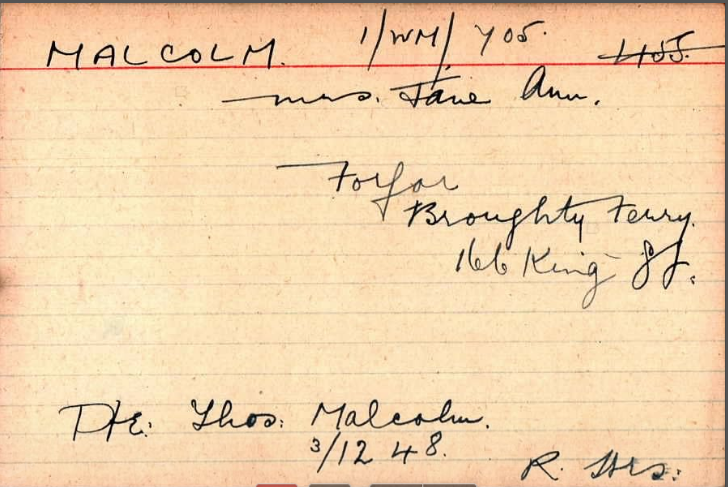 MALCOLM. 1/WM/705. 1455.
Mrs. Jane Ann.
Forfar
Broughty Ferry.
166 King St.
Thos: Malcolm.
3/12 48.
R. Hrs: